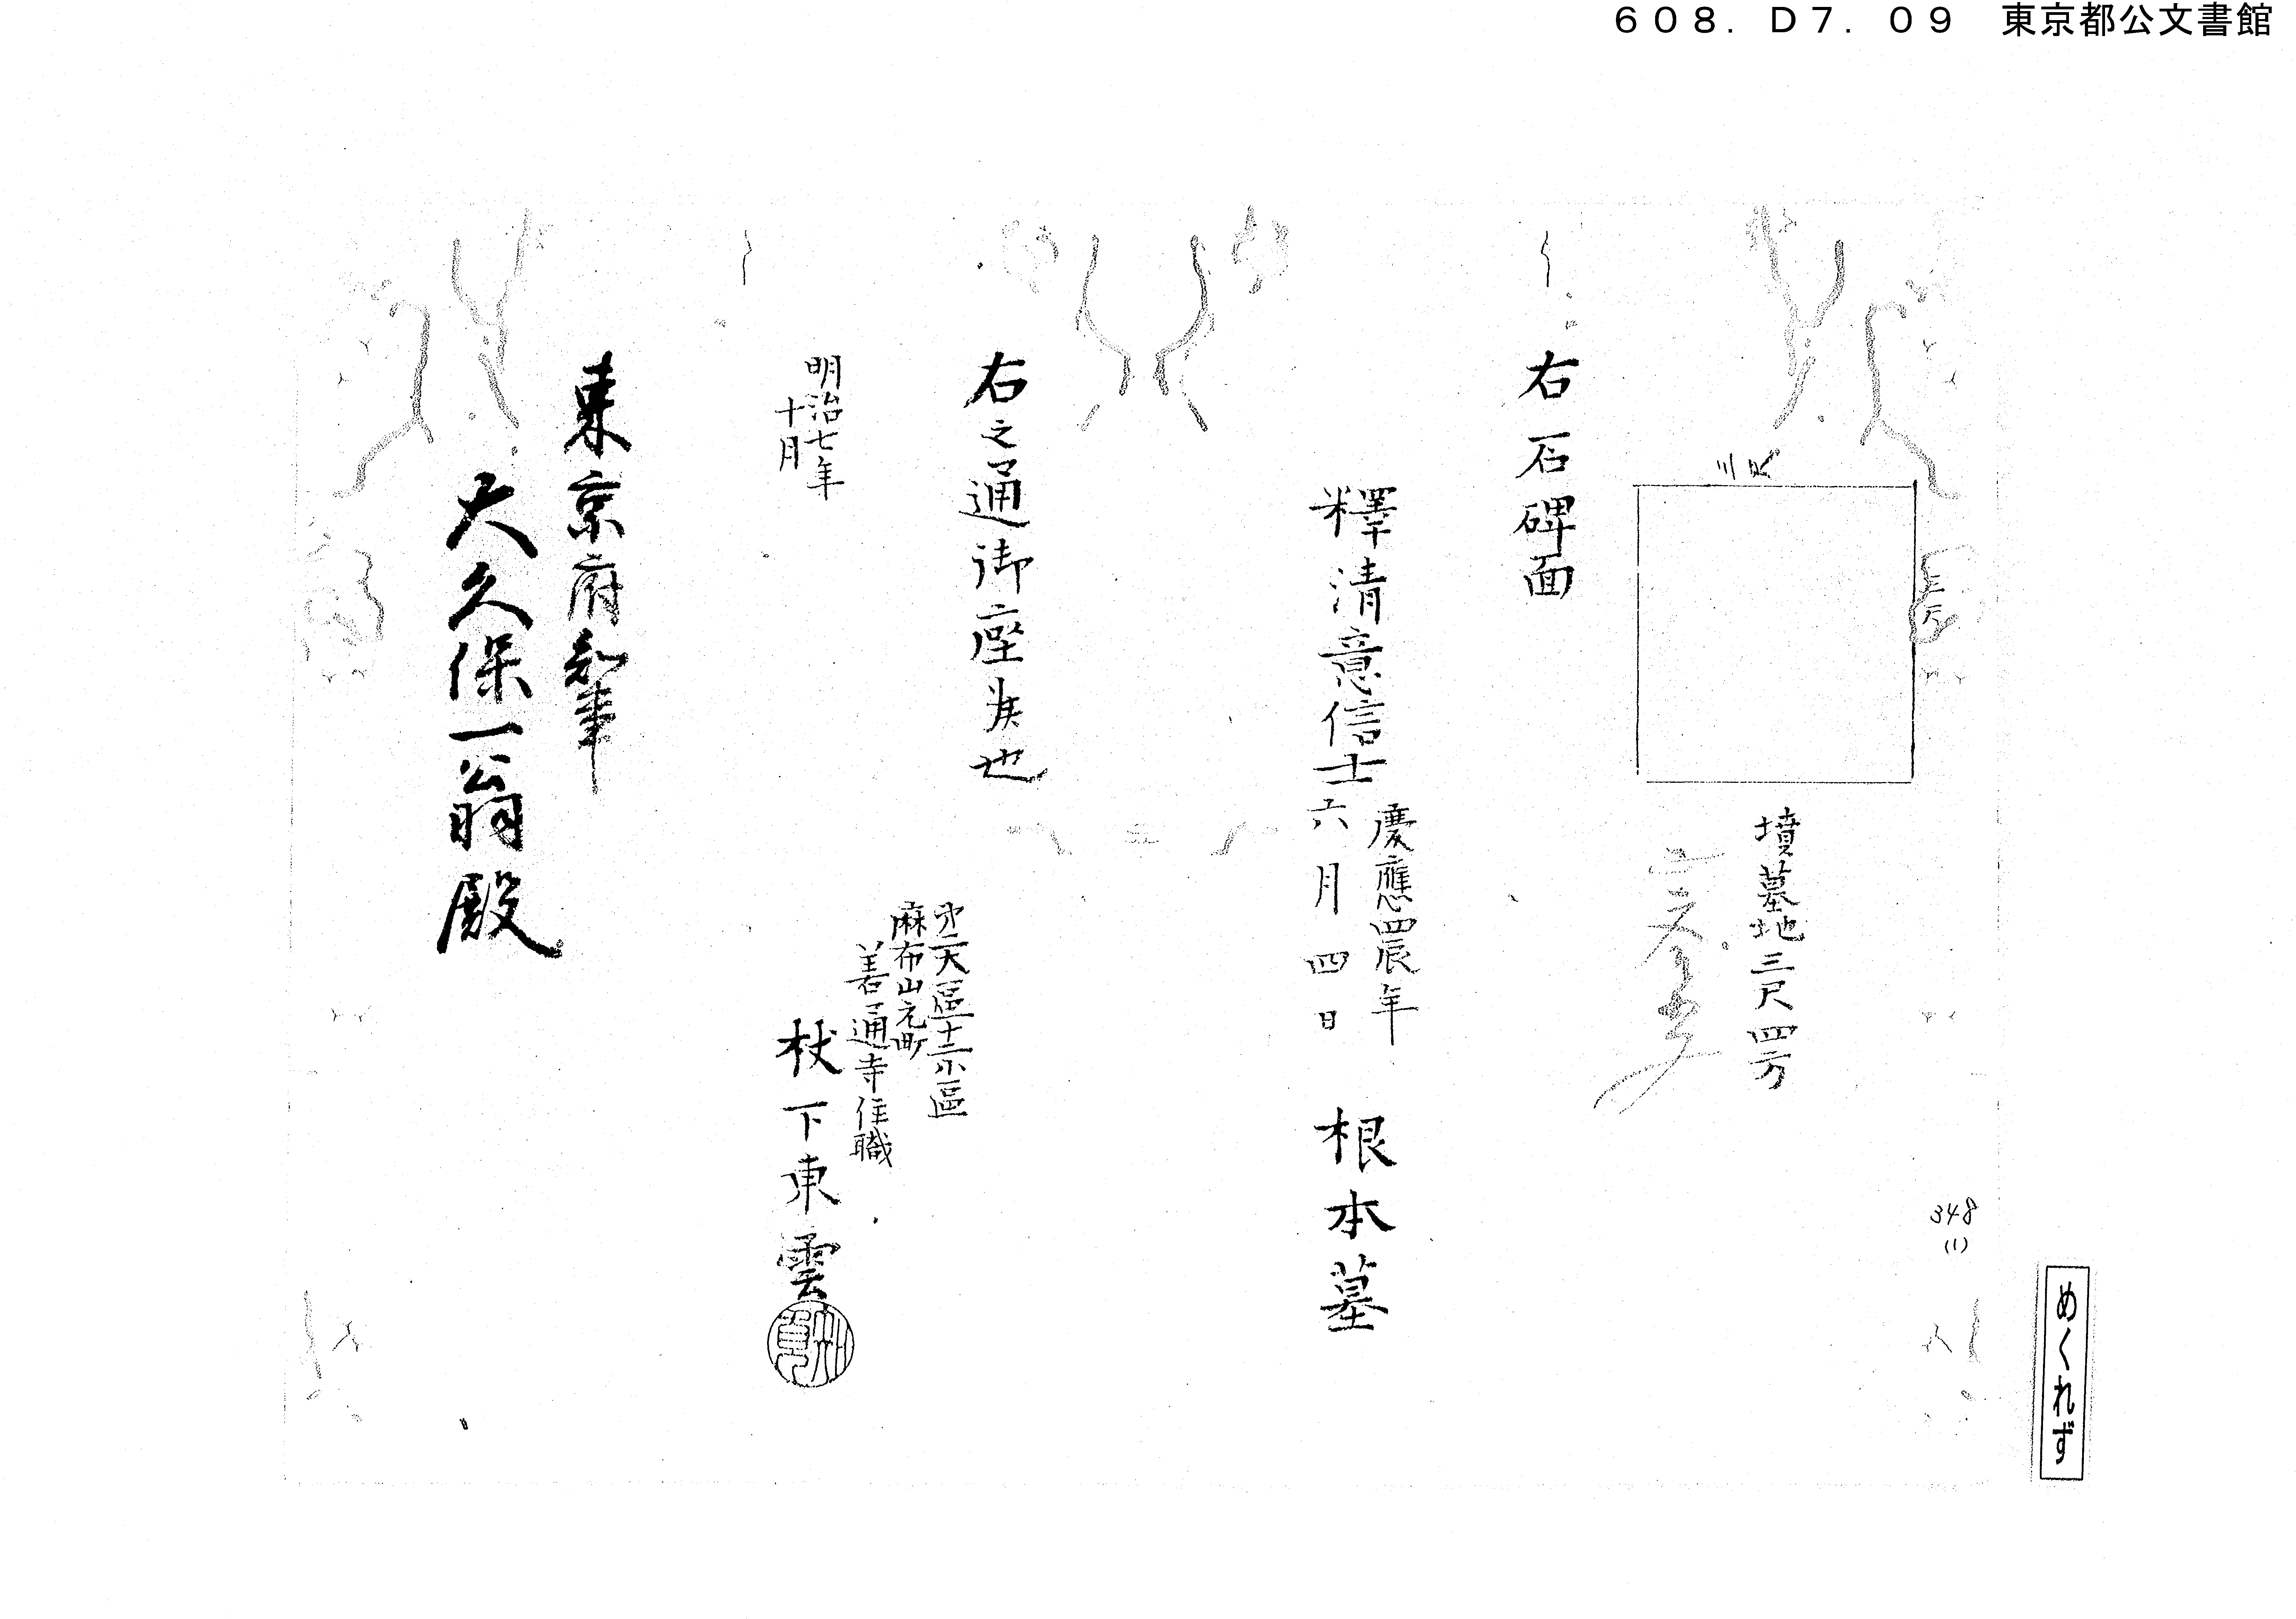 608. D7. 09 東京都公文書館
三尺
三尺
墳墓地三尺四方
右石碑面
釋清意信士
慶應四辰年
六月四日
根本墓
右之通御座候也
明治七年
十月
第二大區十二小區
麻布山元町
善通寺住職
杖下東雲
東京府知事
大久保一翁殿
348
(1)
めくれず